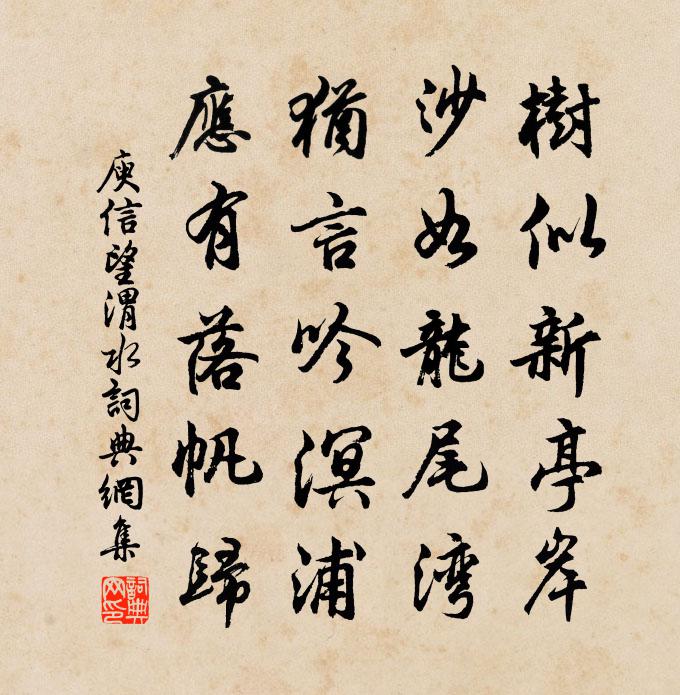 樹似新亭岸
沙如龍尾湾
猶言吟溟浦
應有落帆歸
庾信望渭水詞典網集
詞典
网印